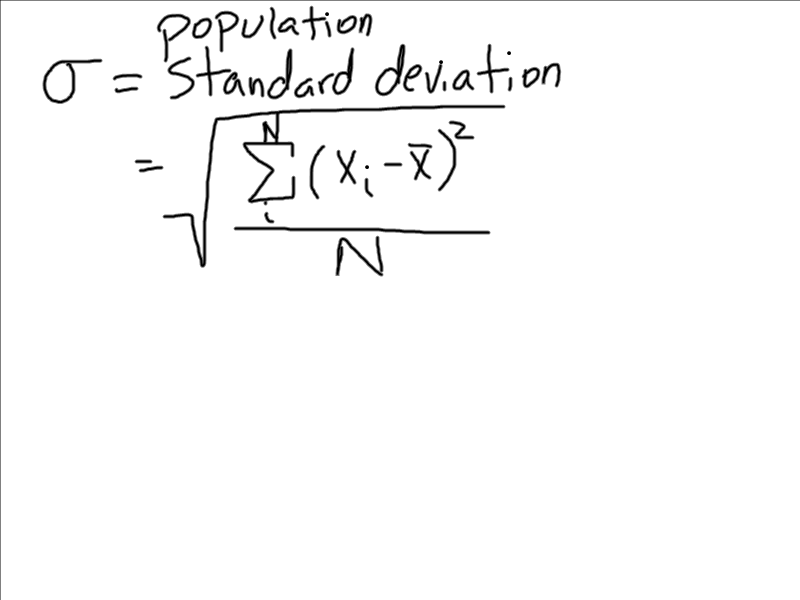 population
σ = standard deviation
= √(∑_i^N (x_i - x̄)² / N)